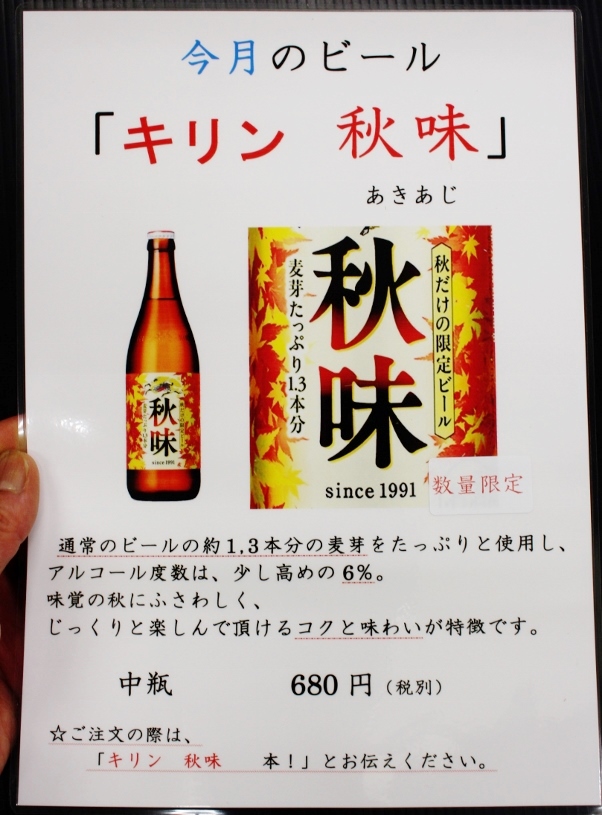 今月のビール
「キリン 秋味」
あきあじ
秋だけの限定ビール
秋味
麦芽たっぷり1.3本分
since 1991
秋味
since 1991
数量限定
通常のビールの約1,3本分の麦芽をたっぷりと使用し、
アルコール度数は、少し高めの 6%。
味覚の秋にふさわしく、
じっくりと楽しんで頂けるコクと味わいが特徴です。
中瓶 680 円（税別）
☆ご注文の際は、
「キリン 秋味 本！」とお伝えください。